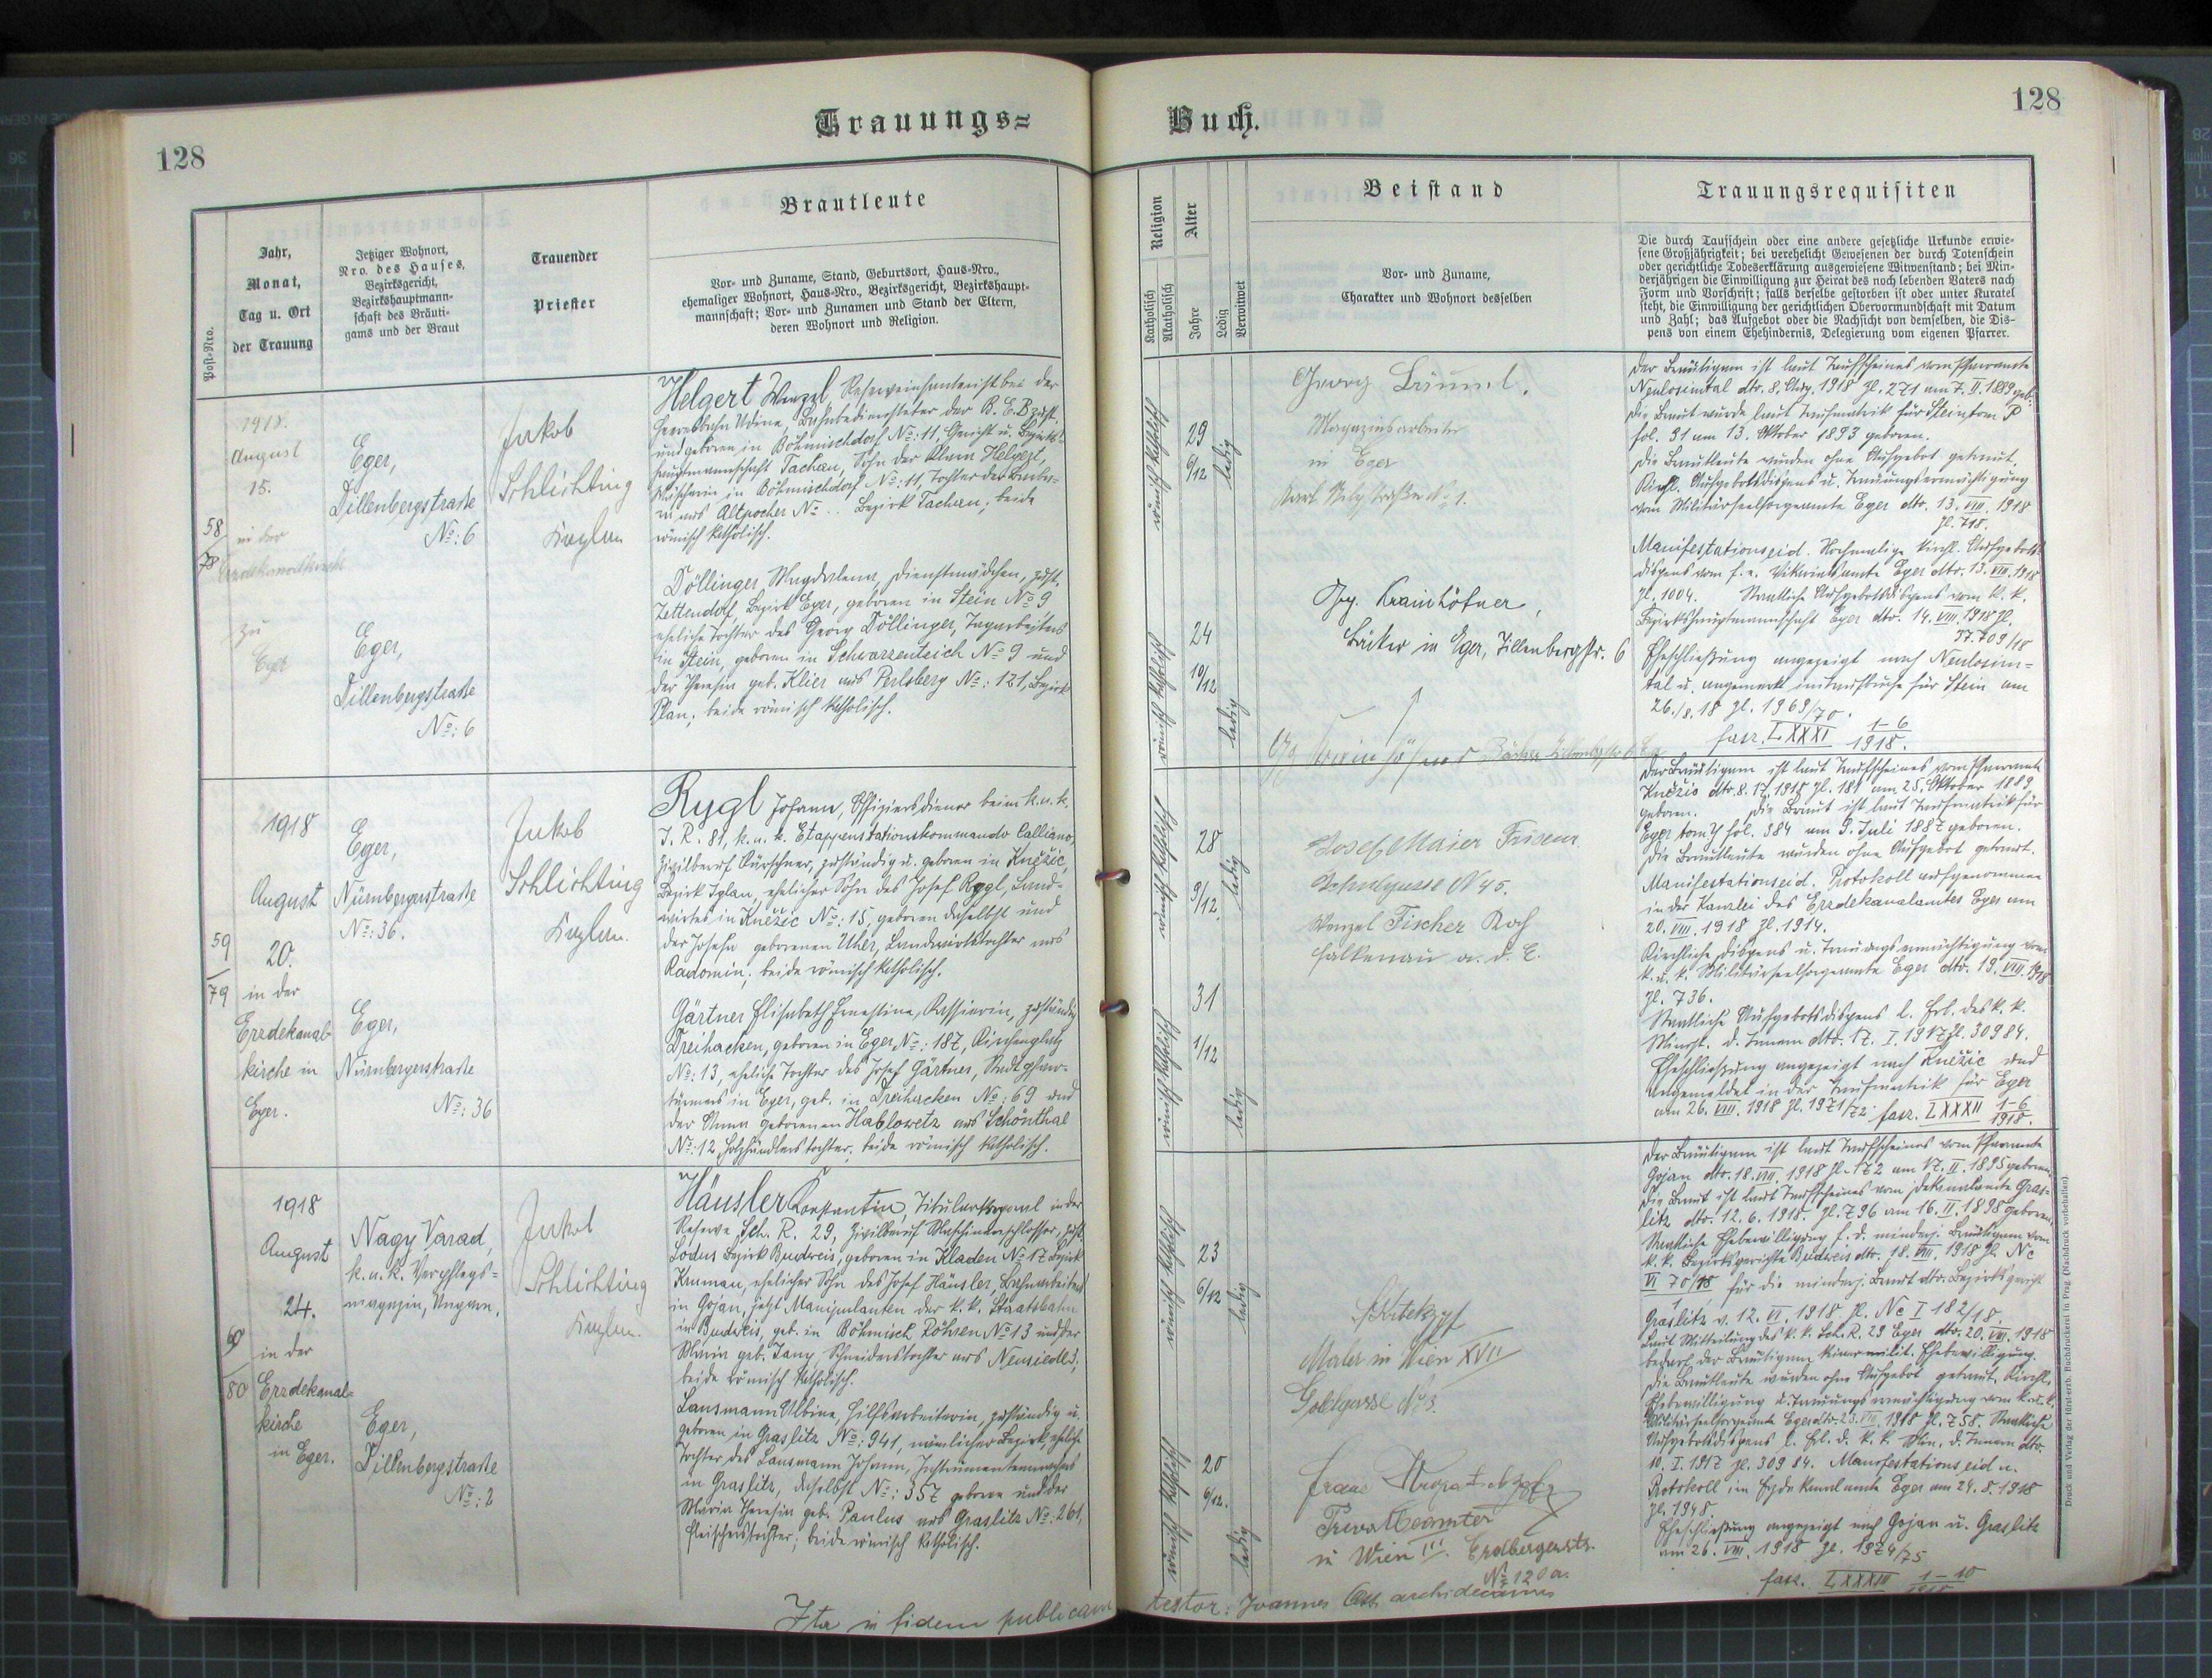 128
Trauungs=
Post-Nro.
Jahr,
Monat,
Tag u. Ort
der Trauung
Jetziger Wohnort,
Nro. des Hauses,
Bezirksgericht,
Bezirkshauptmann-
schaft des Bräuti-
gams und der Braut
Trauender
Priester
Brautleute
Vor- und Zuname, Stand, Geburtsort, Haus-Nro.,
ehemaliger Wohnort, Haus-Nro., Bezirksgericht, Bezirkshaupt-
mannschaft; Vor- und Zunamen und Stand der Eltern,
deren Wohnort und Religion.
58
78
1918.
August
15.
in der
Erzdekanalkirche
zu
Eger
Eger,
Dillenbergstraße
No: 6
Eger,
Dillenbergstraße
No: 6
Jakob
Schlichting
Kaplan
Helgert Wenzl, Reserveinfanterist bei der
Heeresbahn Udine, Bahnbediensteter der B.E.B zust.
und geboren in Böhmischdorf No: 11, Gericht u. Bezirks-
hauptmannschaft Tachau, Sohn der Anna Helgert,
in Böhmischdorf No: 11, Tochter der
aus Altpocher No .. Bezirk Tachau; beide
römisch katholisch.
Döllinger Magdalena, Dienstmädchen, zust.
Zettendorf, Bezirk Eger, geboren in Stein No 9,
eheliche Tochter des Georg Döllinger, Tagarbeiters
in Stein, geboren in Schwarzenteich No 9 und
der Theresia geb. Klier aus Perlsberg No: 121, Bezirk
Plan; beide römisch katholisch.
59
79
1918
August
20.
in der
Erzdekanal-
kirche in
Eger.
Eger,
Nürnbergerstraße
No: 36.
Eger,
Nürnbergerstraße
No: 36
Jakob
Schlichting
Kaplan.
Rygl Johann, Offiziersdiener beim k.u.k.
I.R. 81, k.u.k. Etappenstationskommando Calliano,
Zivilberuf Kürschner, zuständig u. geboren in Kněžic,
Bezirk Iglau, ehelicher Sohn des Josef Rygl, Land-
wirtes in Kněžic No: 15, geboren daselbst und
der Josefa geborenen Uher, Landwirtstochter aus
Radomin; beide römisch katholisch.
Gärtner Elisabeth Ernestine, Kassierin, zuständig
Dreihacken, geboren in Eger No: 187, Kirchenplatz
No: 13, eheliche Tochter des Josef Gärtner, Stadtpfarr-
türmers in Eger, geb. in Dreihacken No: 69 und
der Anna geborenen Hablowetz aus Schönthal
No: 12, Holzhändlerstochter, beide römisch katholisch.
60
80
1918
August
24.
in der
Erzdekanal-
kirche
in Eger.
Nagy Varad,
k.u.k. Verpflegs-
magazin, Ungarn.
Eger,
Dillenbergstraße
No: 2
Jakob
Schlichting
Kaplan.
Häusler Konstantin, Titularkorporal in der
Reserve Sch. R. 29, Zivilberuf Maschinenschlosser, zust.
Lodus Bezirk Budweis, geboren in Kladen No 17 Bezirk
Krumau, ehelicher Sohn des Josef Häusler, Bahnarbeiters
in Gojau, jetzt Manipulanten der k.k. Staatsbahn
in Budweis, geb. in Böhmisch Röhren No 13 und der
Maria geb. Jany, Schneiderstochter aus Neusiedl 3;
beide römisch katholisch.
Lausmann Albine, Hilfsarbeiterin, zuständig u.
geboren in Graslitz No: 941, nämlicher Bezirk, eheliche
Tochter des Lausmann Johann, Instrumentenmachers
in Graslitz, daselbst No: 357 geboren und der
Maria Theresia geb. Paulus aus Graslitz No: 261,
Fleischerstochter; beide römisch katholisch.
Ita in fidem publicam
128
Buch.
Religion
Katholisch
Akatholisch
Alter
Jahre
Ledig
Verwitwet
Beistand
Vor- und Zuname,
Charakter und Wohnort desselben
Trauungsrequisiten
Die durch Taufschein oder eine andere gesetzliche Urkunde erwie-
sene Großjährigkeit; bei verehelicht Gewesenen der durch Totenschein
oder gerichtliche Todeserklärung ausgewiesene Witwenstand; bei Min-
derjährigen die Einwilligung zur Heirat des noch lebenden Vaters nach
Form und Vorschrift; falls derselbe gestorben ist oder unter Kuratel
steht, die Einwilligung der gerichtlichen Obervormundschaft mit Datum
und Zahl; das Aufgebot oder die Nachsicht von demselben, die Dis-
pens von einem Ehehindernis, Delegierung vom eigenen Pfarrer.
römisch katholisch
29
6/12
ledig
römisch katholisch
24
10/12
ledig
Georg
Magazinsarbeiter
in Eger
No 1.
Gg. Krainhöfner,
Bäcker in Eger, Dillenbergstr. 6
Der Bräutigam ist laut Taufscheines vom Pfarramte
Neulosimtal dto. 8. Aug. 1918 Zl. 271 am 7. II. 1889 geb.
Die Braut wurde laut Taufmatrik für Stein tom P
fol. 31 am 13. Oktober 1893 geboren.
Die Brautleute wurden ohne Aufgebot getraut.
Kirchl. Aufgebotsdispens u. Trauungsermächtigung
vom Militärseelsorgeamte Eger dto. 13. VIII. 1918
Zl. 718.
Manifestationseid. Nochmalige kirchl. Aufgebots-
dispens vom f.e. Vikariatsamte Eger dto. 13. VIII. 1918
Zl. 1004. Staatliche Aufgebotsdispens vom k.k.
Bezirkshauptmannschaft Eger dto. 14. VIII. 1918 Zl.
77.709/18
Eheschließung angezeigt nach Neulosim-
tal u. angemerkt im Taufbuche für Stein am
26./8.18 Zl. 1969/70.
fasz. LXXXI 1-6
1918.
römisch katholisch
28
9/12
ledig
römisch katholisch
31
1/12
ledig
Josef Maier Friseur
Schulgasse N 45.
Wenzel Fischer Koch
Falkenau a. d. E.
Der Bräutigam ist laut Taufscheines vom Pfarramte
Kněžic dto. 8. 17. 1918 Zl. 181 am 25. Oktober 1889
geboren. Die Braut ist laut Taufmatrik für
Eger tom Y fol. 384 am 9. Juli 1887 geboren.
Die Brautleute wurden ohne Aufgebot getraut.
Manifestationseid. Protokoll aufgenommen
in der Kanzlei des Erzdekanalamtes Eger am
20. VIII. 1918 Zl. 1914.
Kirchliche Dispens u. Trauungsermächtigung vom
k.u.k. Militärseelsorgeamte Eger dto. 19. VIII. 1918
Zl. 736.
Staatliche Aufgebotsdispens l. Erl. des k.k.
Minist. d. Innern dto. 17. I. 1917 Zl. 30984.
Eheschließung angezeigt nach Kněžic und
angemeldet in der Taufmatrik für Eger
am 26. VIII. 1918 Zl. 1971/72. fasz. LXXXII 1-6
1918.
römisch katholisch
23
6/12
ledig
römisch katholisch
20
6/12.
ledig
Maler in Wien XVII
Goldgasse No 3.
Franz
Privatbeamter
in Wien III. Erdbergerstr.
No 120a.
Der Bräutigam ist laut Taufscheines vom Pfarramte
Gojau dto. 18. VIII. 1918 Zl. 172 am 17. II. 1895 geboren.
Die Braut ist laut Taufscheines vom Dekanalamte Gras-
litz dto. 12. 6. 1918. Zl. 796 am 16. II. 1898 geboren.
Staatliche Ehebewilligung f. d. minderj. Bräutigam vom
k.k. Bezirksgerichte Budweis dto. 18. VIII. 1918 Zl. Nc
VI 70/18 für die minderj. Braut dto. Bezirksgericht
1
Graslitz v. 12. VI. 1918 Zl. Nc I 182/18.
Laut Mitteilung des k.k. Sch. R. 29 Eger dto. 20. VIII. 1918
bedarf der Bräutigam keiner milit. Ehebewilligung.
Die Brautleute wurden ohne Aufgebot getraut. Kirchl.
Ehebewilligung u. Trauungsermächtigung vom k.u.k.
Militärseelsorgeamte Eger dto. 23. VIII. 1918 Zl. 758. Staatliche
Aufgebotsdispens l. Erl. d. k.k. Min. d. Innern dto.
10. I. 1917 Zl. 309 84. Manifestationseid u.
Protokoll im Erzdekanalamte Eger am 24. 8. 1918
Zl. 1948.
Eheschließung angezeigt nach Gojau u. Graslitz
am 26. VIII. 1918 Zl. 1974/75
fasz. LXXXIII 1-10
1918
testor: Joannes archidecanus
Druck und Verlag der fürst-erzb. Buchdruckerei in Prag. (Nachdruck vorbehalten)